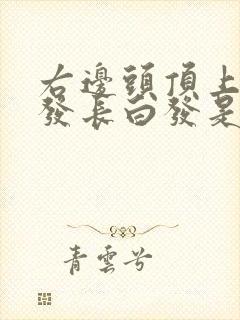 右邊頭頂上
發長白發是
青雲兮